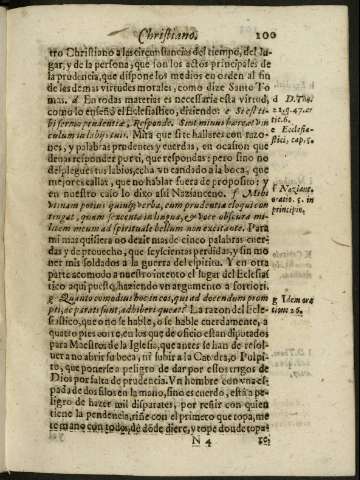 Christiano. 100
tro Christiano a las circunstancias del tiempo, del lu-
gar, y de la persona, que son los actos principales de
la prudencia, que dispone los medios en orden al fin
de las demas virtudes morales, como dize Santo To
mas. d En todas materias es necessaria esta virtud,
como lo enseñò el Eclesiastico, diziendo: e Si est ti-
bi sermo prudentiæ, Responde. Sint minus hæreas vin
culum in labijs tuis. Mira que si te hallares con razo-
nes, y palabras prudentes y cuerdas, en ocasion que
deuas responder por ti, que respondas: pero sino no
despliegues tus labios, echa vn candado a la boca, que
mejor es callar, que no hablar fuera de proposito: y
en nuestro caso lo dixo assi Nazianceno. f Mihi
vtinam potius quinque verba, cum prudentia eloqui con
tingat, quam sexcenta in lingua, & voce obscura mi-
litem meum ad spirituale bellum non excitante. Para
mi mas quisiera no dezir mas de cinco palabras cuer-
das y de prouecho, que seyscientas perdidas, y sin mo
uer mis soldados a la guerra del espiritu. Y en otra
parte acomodo a nuestro intento el lugar del Eclesias
tico aqui puesto, haziendo vn argumento a fortiori.
g Quanto comodius hoc in eos, qui ad docendum prom
pti, ac parati sunt, adhiberi queat? La razon del Ecle-
siastico, que o no se hable, o se hable cuerdamente, a
quatro pies corre en los que de oficio estan diputados
para Maestros de la Iglesia, que antes se han de resol-
uer a no abrir su boca, ni subir a la Catedra, o Pulpi-
to, que ponerse a peligro de dar por essos trigos de
Dios por falta de prudencia. Vn hombre con vna es-
pada de dos filos en la mano, sino es cuerdo, està a pe-
ligro de hazer mil disparates, por reñir con quien
tiene la pendencia, riñe con el primero que topa, me
te mano con todos, dè dõde diere, y tope donde topa-
N 4 re,
d D. Tho.
2.2. q. 47. ar
tic. 6.
e Ecclesia-
stici, cap. 5.
f Naziant.
oratio. 5. in
principio.
g Idem ora
tione 26.